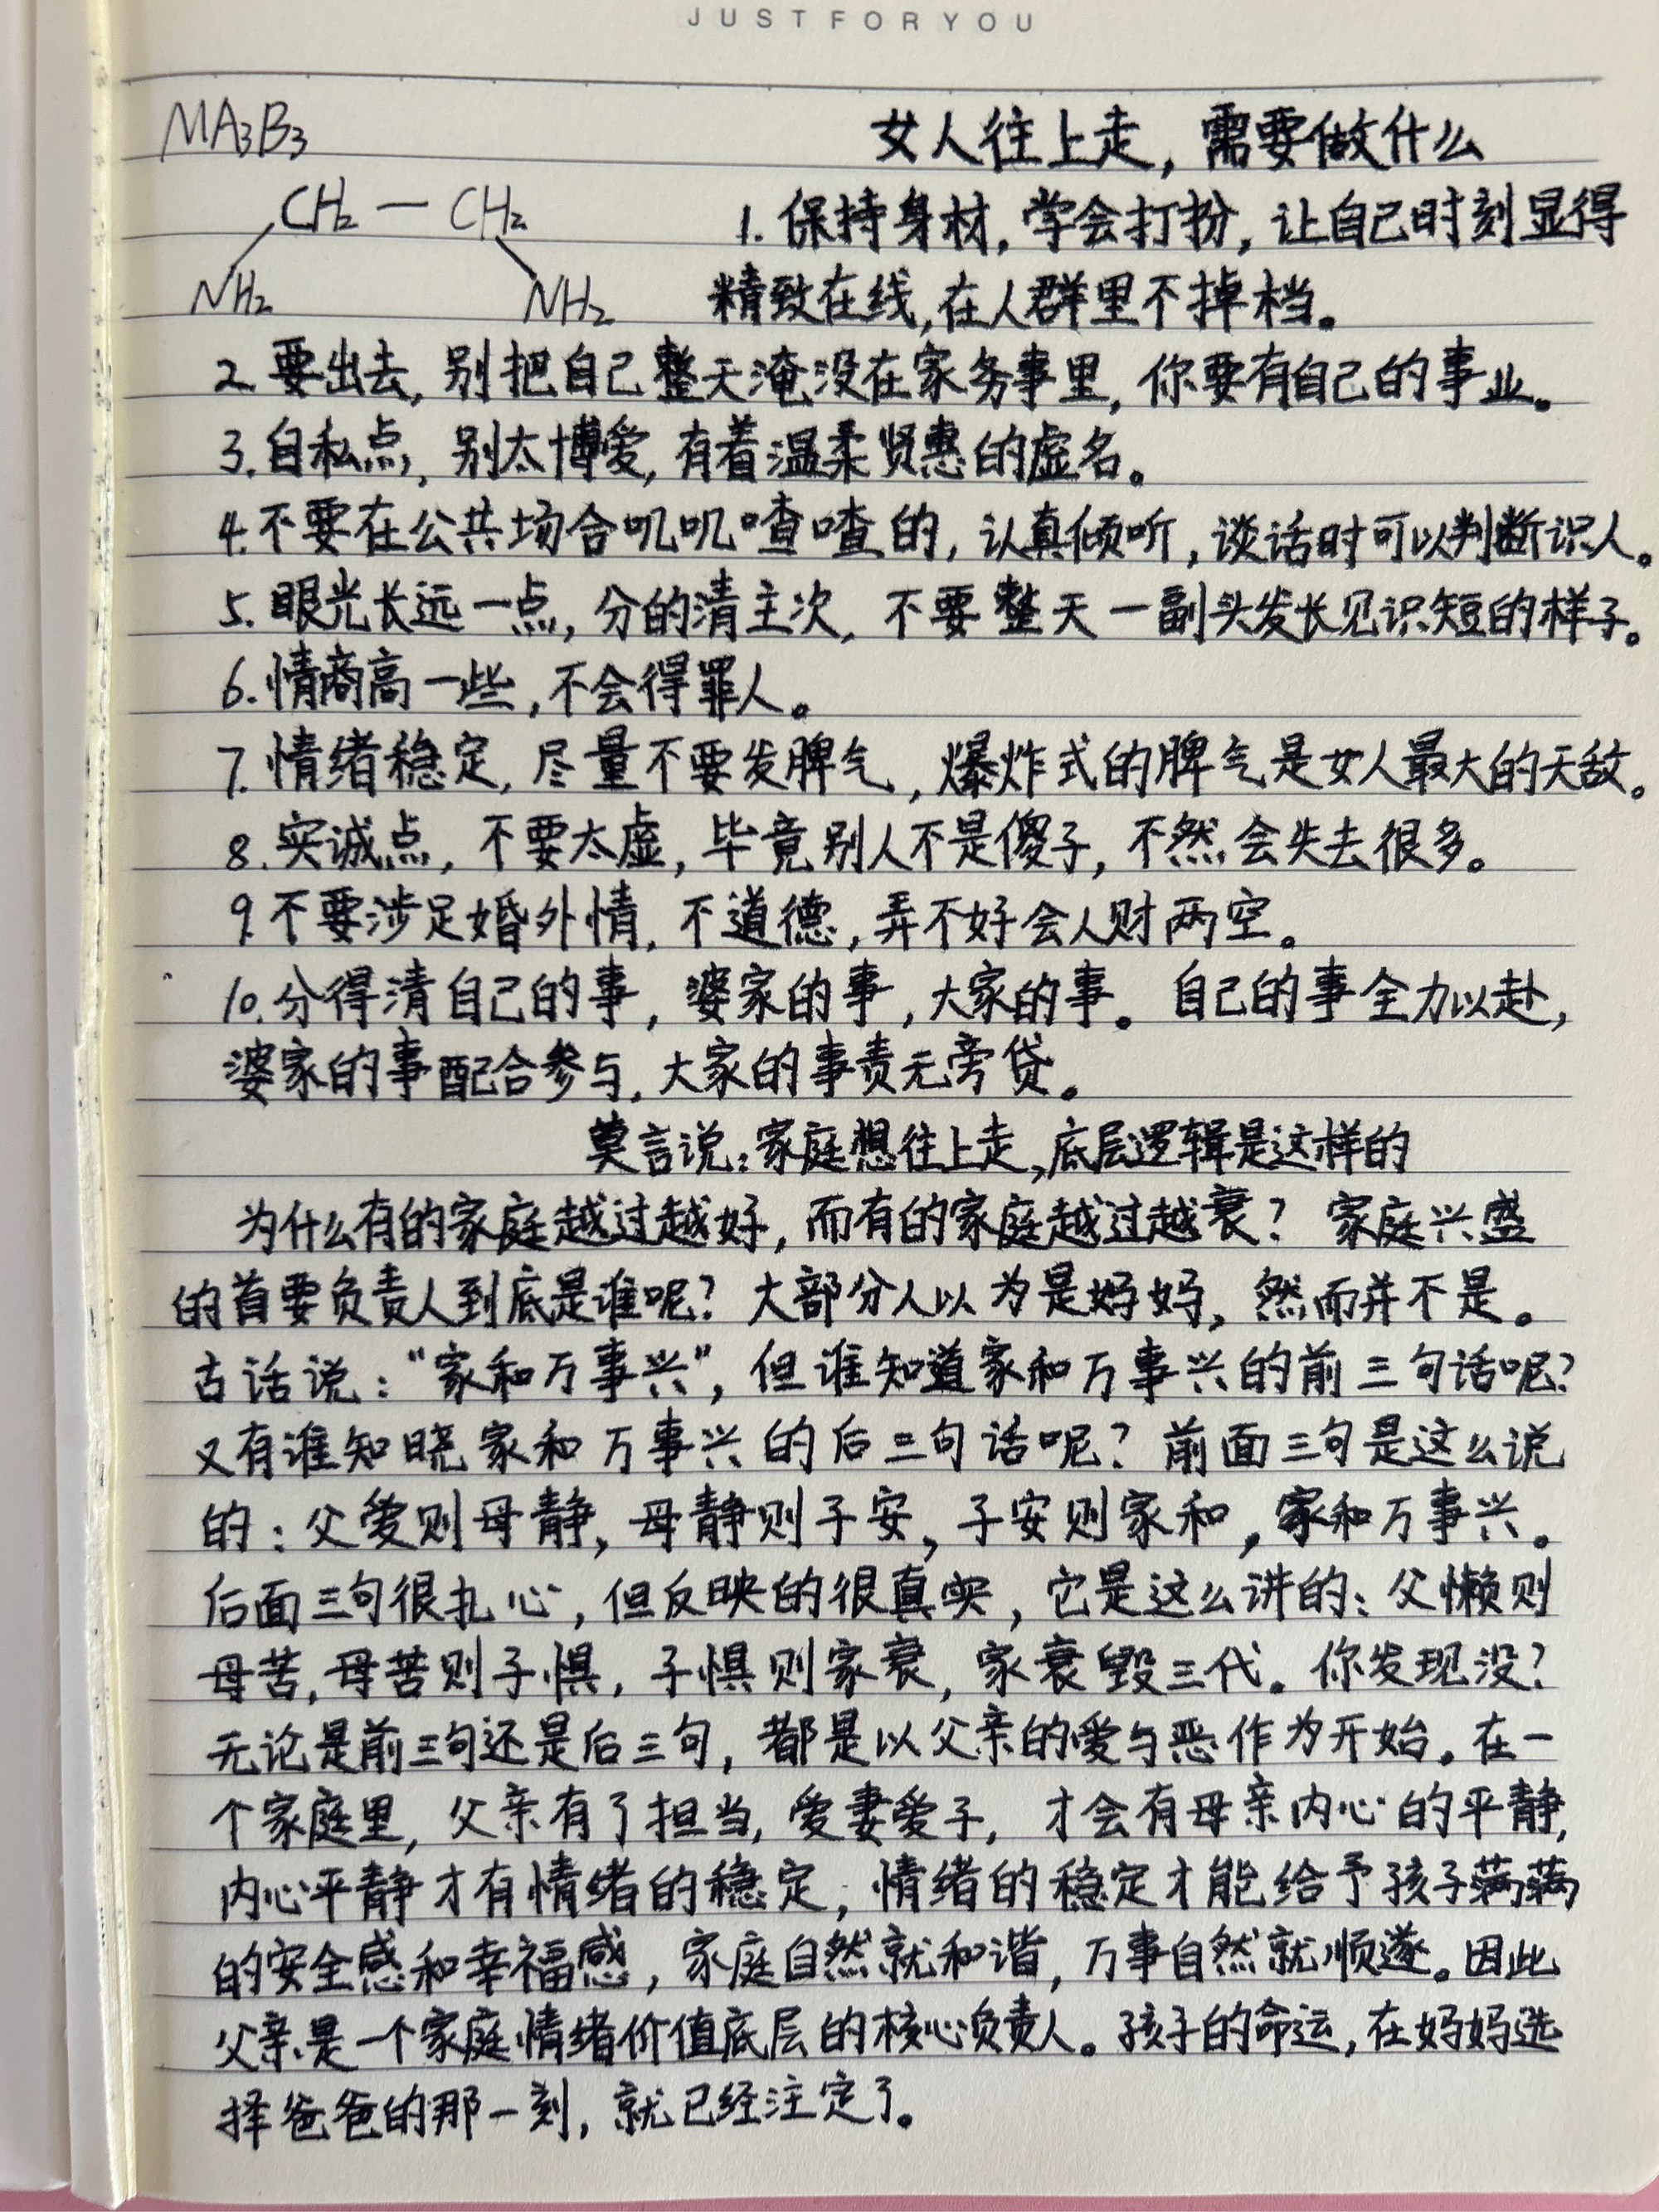 JUST FOR YOU
MA₃B₃
女人往上走，需要做什么
CH₂ — CH₂
1. 保持身材，学会打扮，让自己时刻显得
NH₂ NH₂
精致在线，在人群里不掉档。
2. 要出去，别把自己整天淹没在家务事里，你要有自己的事业。
3. 自私点，别太博爱，有着温柔贤惠的虚名。
4. 不要在公共场合叽叽喳喳的，认真倾听，谈话时可以判断识人。
5. 眼光长远一点，分的清主次，不要整天一副头发长见识短的样子。
6. 情商高一些，不会得罪人。
7. 情绪稳定，尽量不要发脾气，爆炸式的脾气是女人最大的天敌。
8. 实诚点，不要太虚，毕竟别人不是傻子，不然会失去很多。
9. 不要涉足婚外情，不道德，弄不好会人财两空。
10. 分得清自己的事，婆家的事，大家的事。自己的事全力以赴，
婆家的事配合参与，大家的事责无旁贷。
莫言说：家庭想往上走，底层逻辑是这样的
为什么有的家庭越过越好，而有的家庭越过越衰？家庭兴盛
的首要负责人到底是谁呢？大部分人以为是妈妈，然而并不是。
古话说：“家和万事兴”，但谁知道家和万事兴的前三句话呢？
又有谁知晓家和万事兴的后三句话呢？前面三句是这么说
的：父爱则母静，母静则子安，子安则家和，家和万事兴。
后面三句很扎心，但反映的很真实，它是这么讲的：父懒则
母苦，母苦则子惧，子惧则家衰，家衰毁三代。你发现没？
无论是前三句还是后三句，都是以父亲的爱与恶作为开始。在一
个家庭里，父亲有了担当，爱妻爱子，才会有母亲内心的平静，
内心平静才有情绪的稳定，情绪的稳定才能给予孩子满满
的安全感和幸福感，家庭自然就和谐，万事自然就顺遂。因此
父亲是一个家庭情绪价值底层的核心负责人。孩子的命运，在妈妈选
择爸爸的那一刻，就已经注定了。